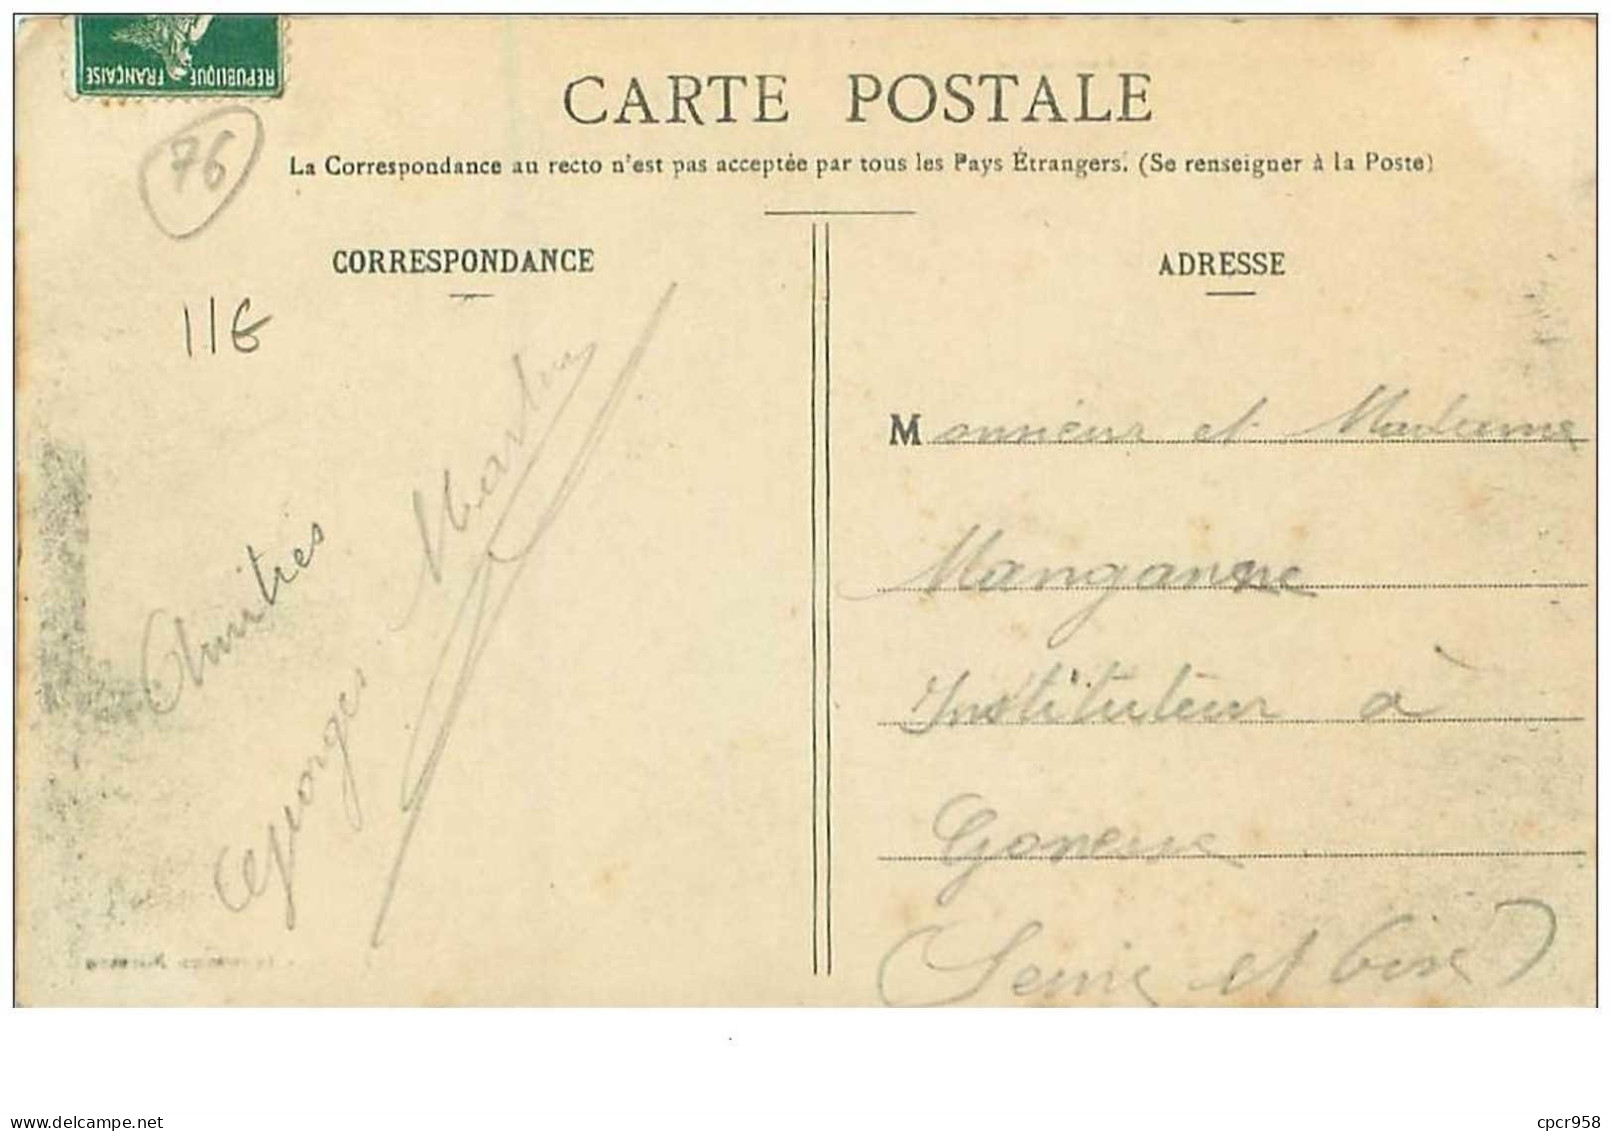 REPUBLIQUE FRANÇAISE
CARTE POSTALE
La Correspondance au recto n'est pas acceptée par tous les Pays Étrangers. (Se renseigner à la Poste)
76
CORRESPONDANCE
11€
Amitiés
Georges Martin
ADRESSE
Monsieur et Madame
Manganne
Instituteur à
Gonesse
(Seine et Oise)
delcampe.net
cpcr958